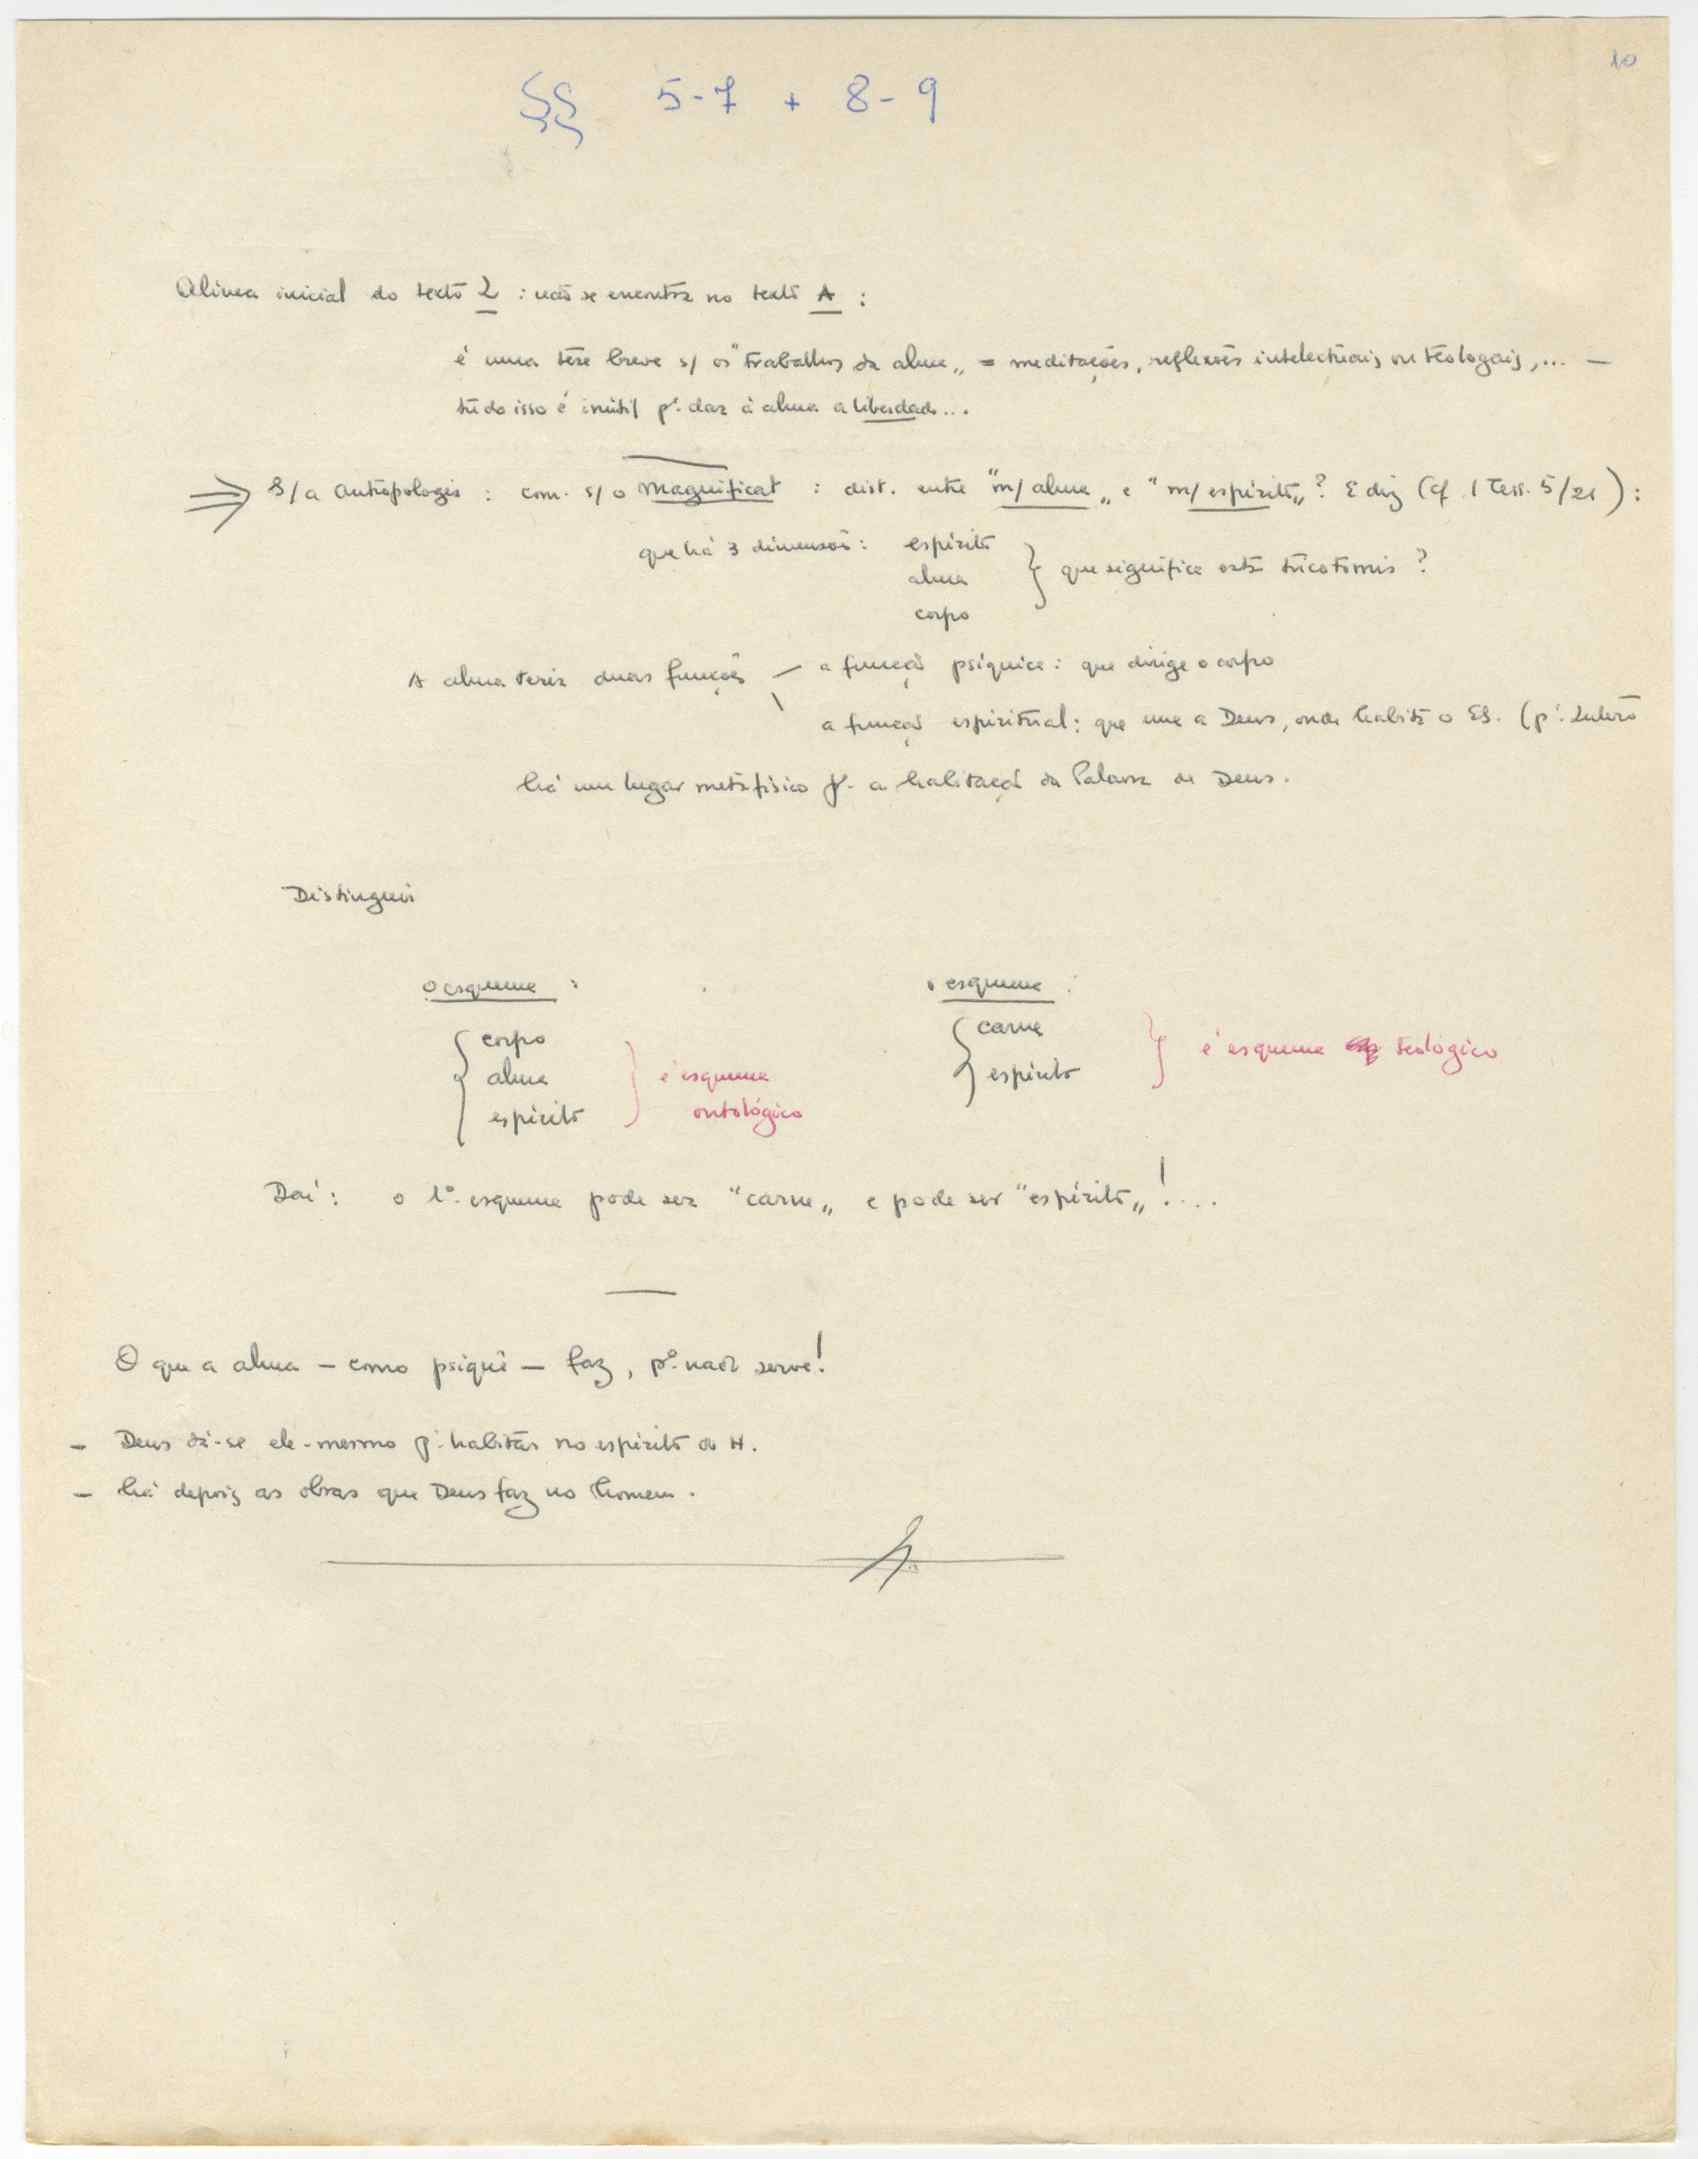 10
§§ 5-7 + 8-9
Alinea inicial do texto L : não se encontra no texto A :
é uma tese breve s/ os "trabalhos da alma„ = meditações, reflexões intelectuais ou teologais, ... —
tudo isso é inútil pª. dar à alma a liberdade...
⇒ S/ a Antropologia : com. s/ o Magnificat : dist. entre "m/ alma„ e "m/ espírito„ ? E diz (cf. 1 Tess. 5/21) :
que há 3 dimensões : espírito
alma
corpo
} que significa esta tricotomia ?
A alma teria duas funções — a função psíquica : que dirige o corpo
\ a função espiritual : que une a Deus, onde habita o ES. (pª. Lutero
há um lugar metafísico pª. a habitação da Palavra de Deus.
Distinguir
o esquema : o esquema :
{ corpo
alma
espírito
} é esquema
ontológico
{ carne
espírito
} é esquema teológico
Daí : o 1º. esquema pode ser "carne„ e pode ser "espírito„ ! ...
O que a alma — como psiquê — faz, pª. nada serve !
— Deus dá-se ele-mesmo pª. habitar no espírito do H.
— há depois as obras que Deus faz no homem.